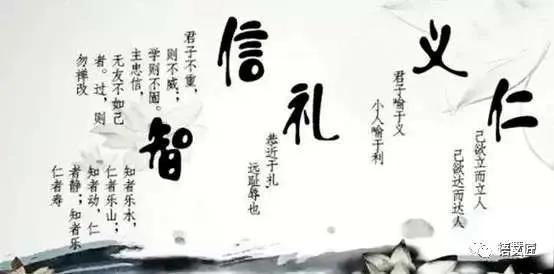 仁
己欲立而立人
己欲达而达人
义
君子喻于义
小人喻于利
礼
恭近于礼,
远耻辱也
信
君子不重,
则不威;
学则不固。
主忠信,
无友不如己
者。过,则
勿禅改
智
知者乐水,
仁者乐山;
知者动,仁
者静;知者乐
仁者寿